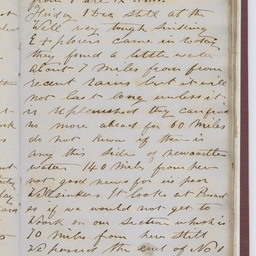 from
Friday 15th still at the
Well very rough drinking
Explorers came in to day
they find a little water
about 7 miles from from
recent rains but it will
not last long unless it
is replenished they can find
no more ahead for 60 miles
do not know if there is
any this side of newcastle
water 140 miles from here
not good news for us poor
It looks at Present
as if we would not get to
work on our section which is
70 miles from here still
We passed the end of No 1